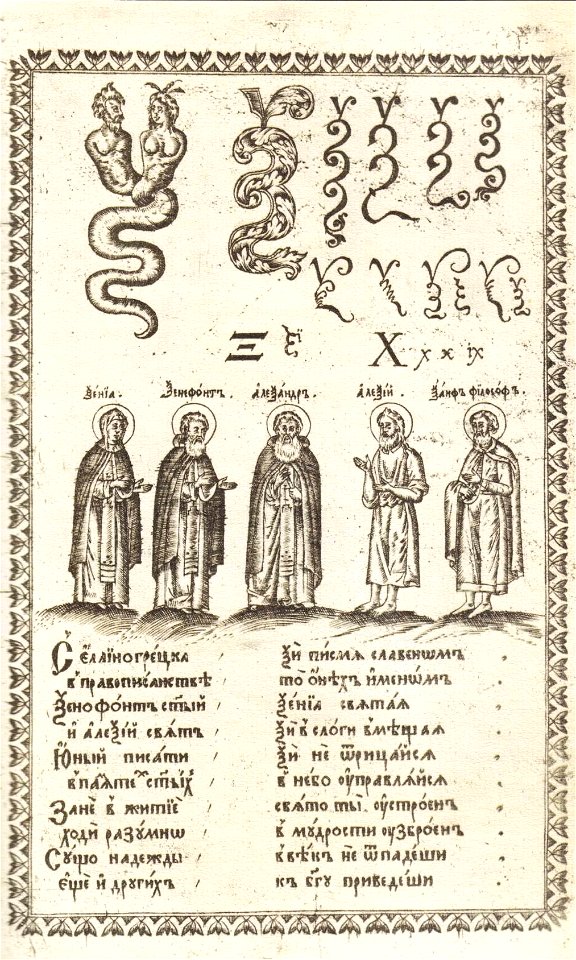 Ѯ ѯ Х х х їх
Ѯенїа. Ѯенофонтъ. Алеѯандръ. Алеѯїй. Ѯанфъ філософъ.
Се́ єллїногре́цка Ѯи́ писмѧ славенѡмъ
в правописанствѣ то о́нѣхъ и́менѡмъ
Ѯенофо́нтъ ст҃ы́й Ѯе́нїа святая
и҆ Але́ѯїй свѧтъ Ѯи́ в сло́ги вмѣщая
Ю҆ный писа́ти Ѯи́ не ѿрица́йсѧ
ст҃ы́х в не́бо оу҆правлѧйсѧ
Зане́ в житїе́ свѧто ты́ оу҆стро́ен
ходи́ разу́мнѡ в му́дрости оу҆збро́ен
Су́що наде́жды в вѣ́къ не ѿпаде́ши
є҆ще́ и҆ други́хъ къ бг҃у приведе́ши